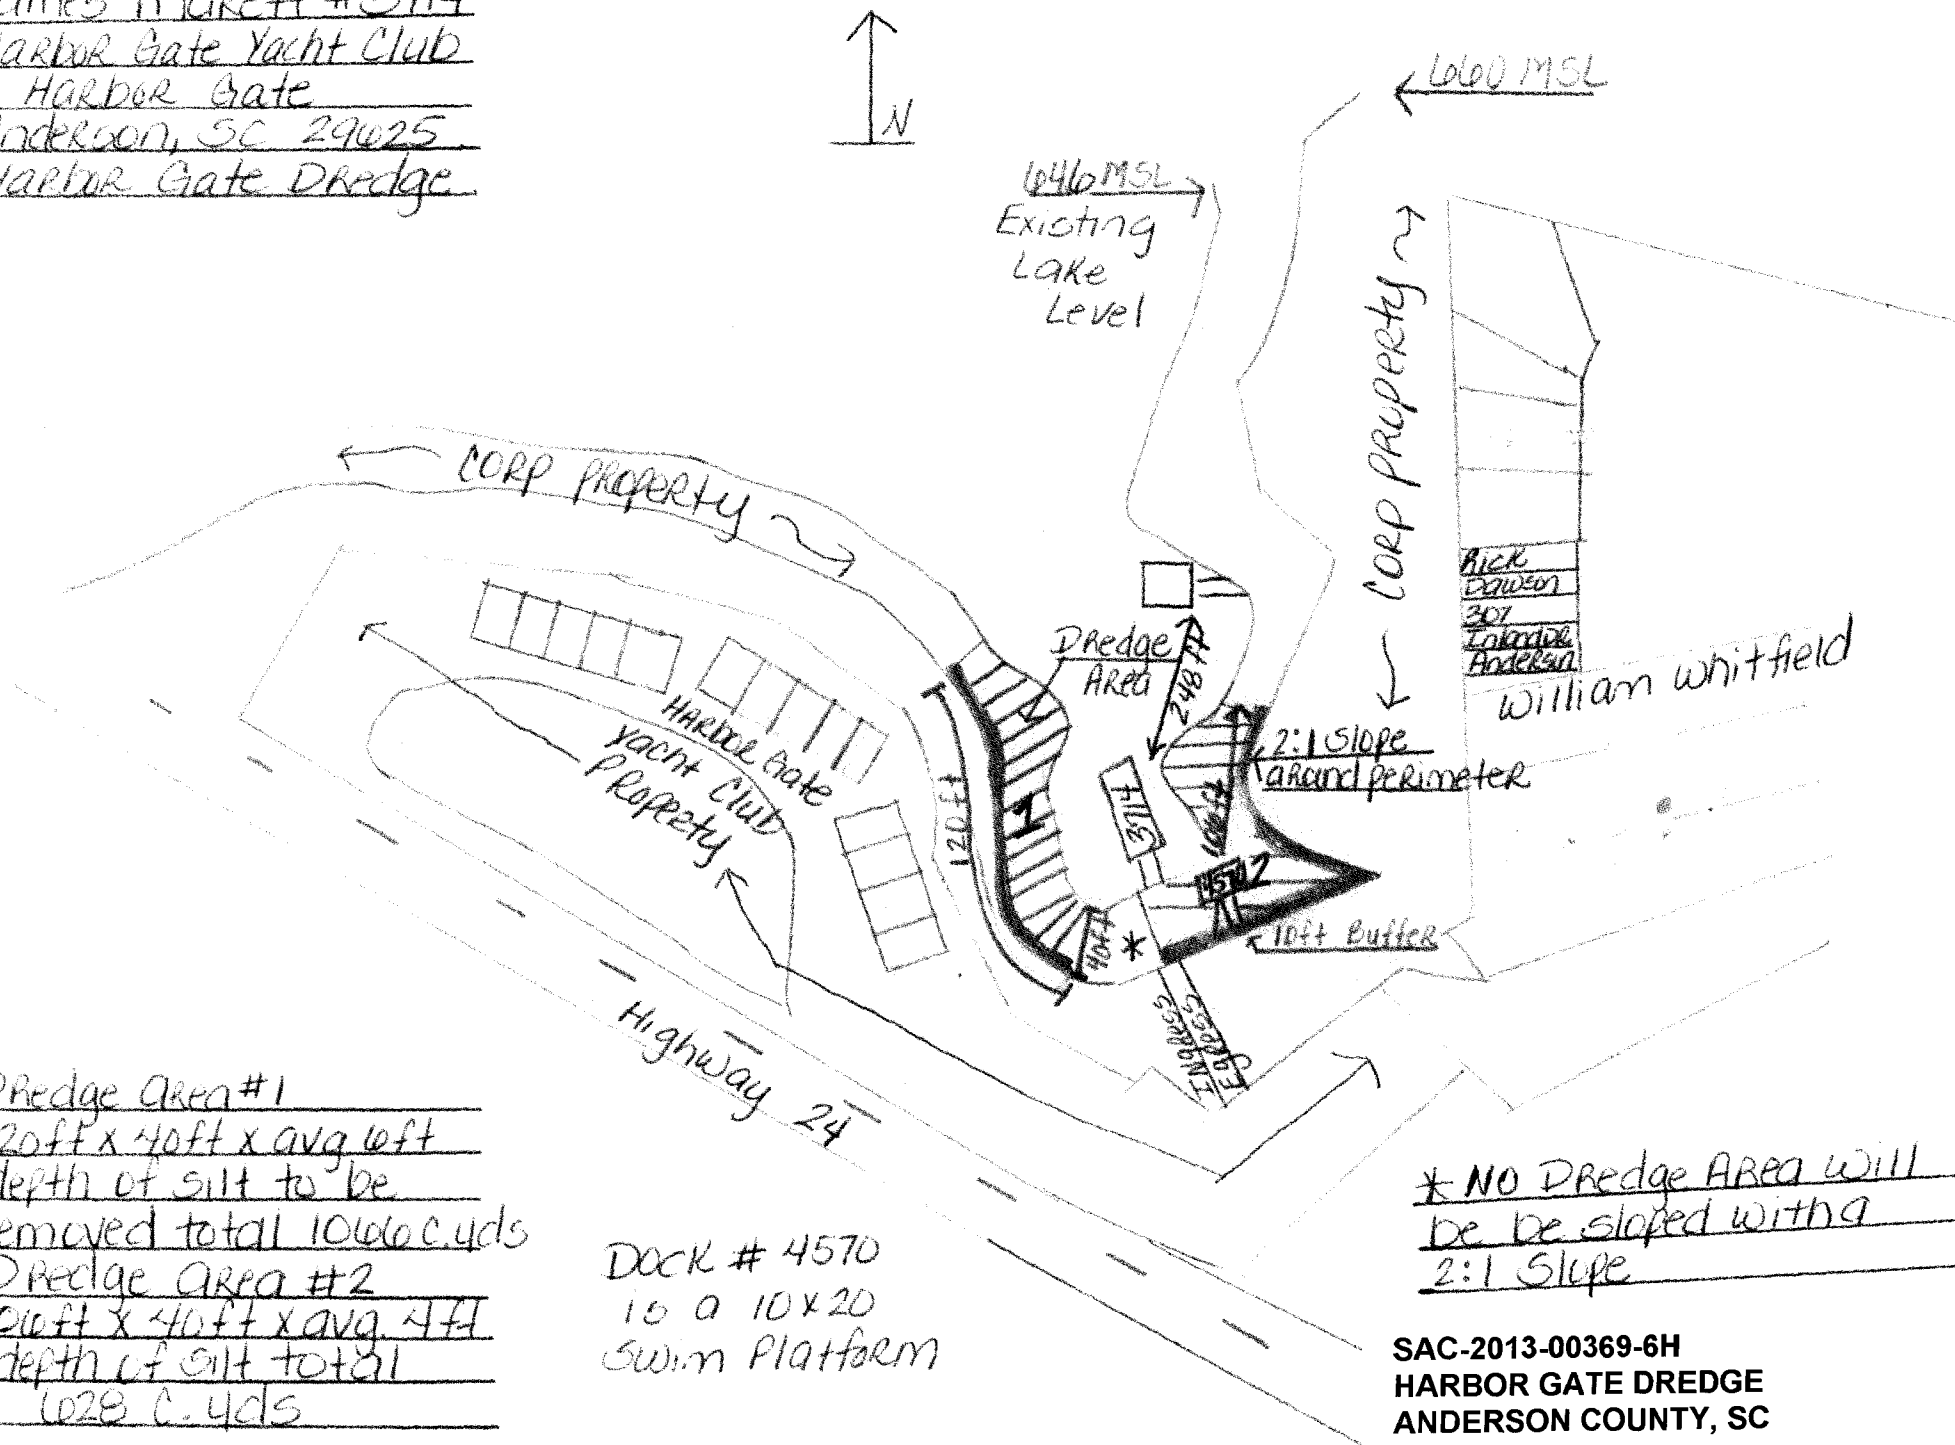 Harbor Gate Yacht Club
Harbor Gate
Anderson, SC 29625
Harbor Gate Dredge
N
660 MSL
646 MSL
Existing
Lake
Level
CORP PROPERTY
CORP PROPERTY
Rick
Dawson
307
Anderson
William Whitfield
Dredge
Area
248 ft
HARBOR Gate
Yacht Club
Property
120 ft
1
3714
106 ft
2:1 Slope
around perimeter
4570
2
10ft Buffer
40ft
*
INGRESS
EGRESS
Highway 24
Dredge Area #1
20ft x 40ft x avg 6ft
depth of silt to be
removed total 1066 C.yds
Dredge Area #2
06ft x 40ft x avg. 4ft
depth of silt total
628 C.yds
Dock # 4570
is a 10x20
Swim Platform
* NO Dredge Area will
be be sloped with a
2:1 Slope
SAC-2013-00369-6H
HARBOR GATE DREDGE
ANDERSON COUNTY, SC